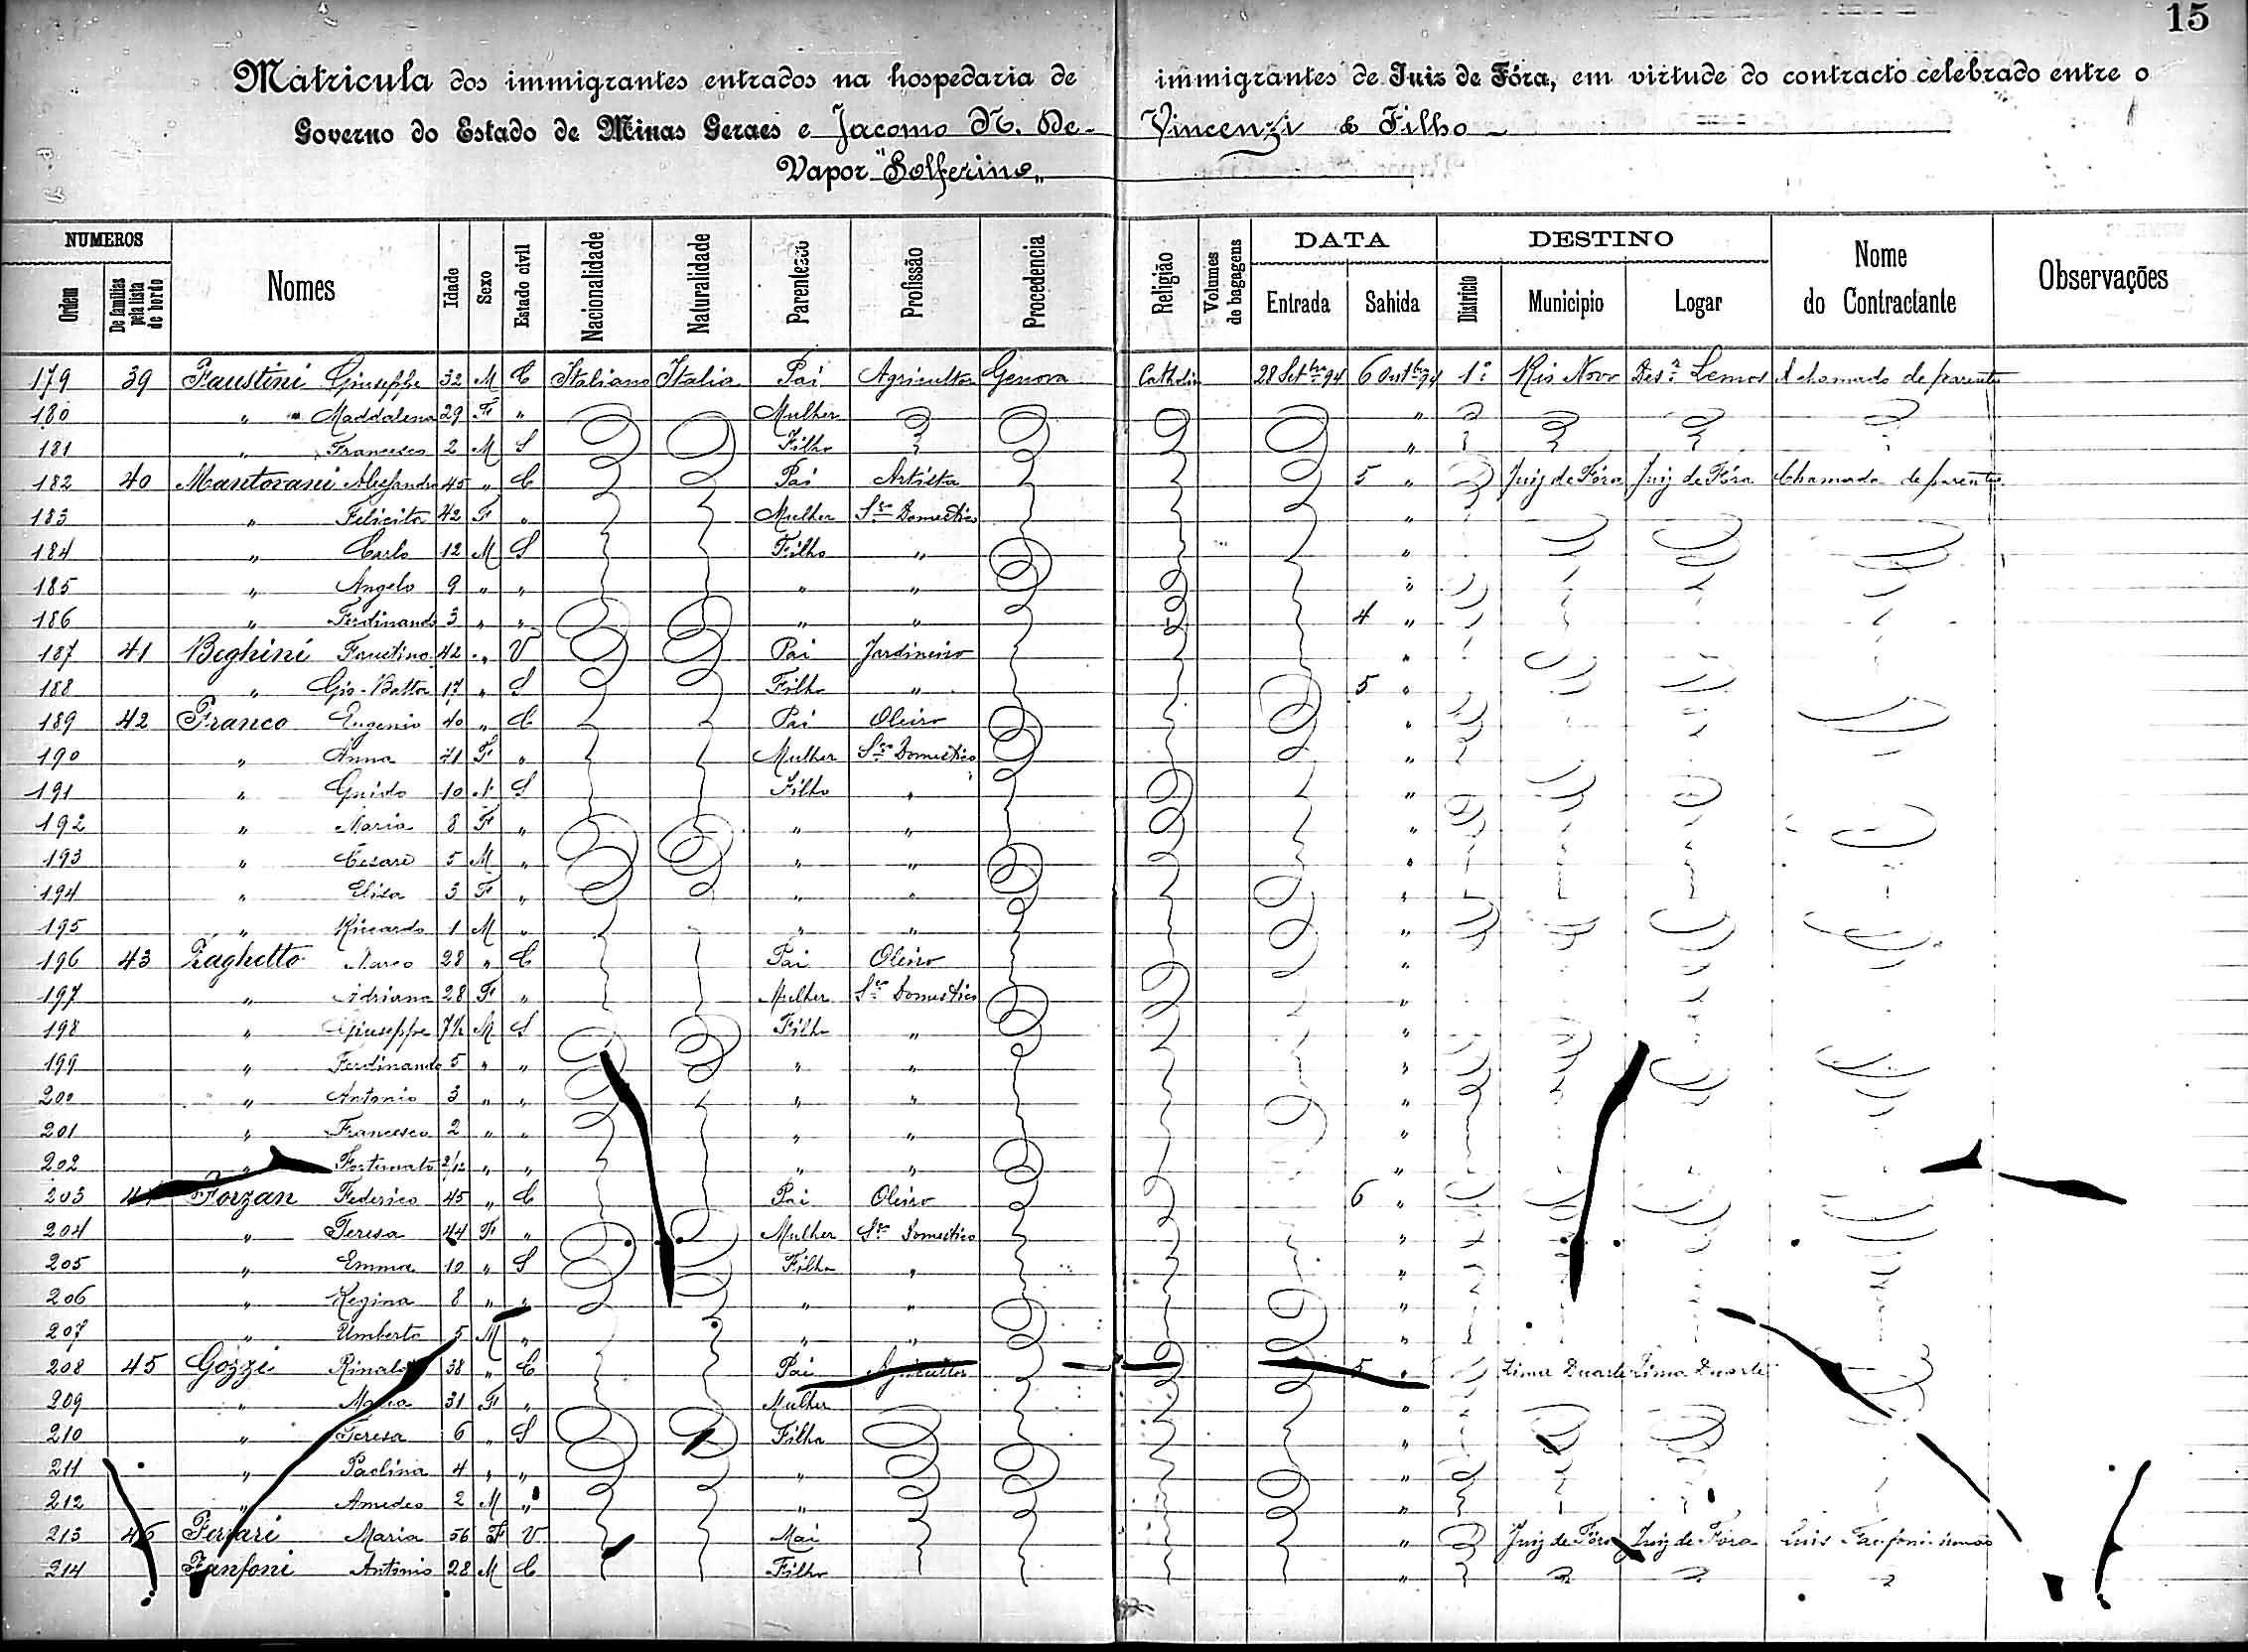 15
Matricula dos immigrantes entrados na hospedaria de immigrantes de Juiz de Fóra, em virtude do contracto celebrado entre o
Governo do Estado de Minas Geraes e Jacomo N. De- Vincenzi & Filho
Vapor "Solferino"
NUMEROS DATA DESTINO
Ordem De familias pela lista de bordo Nomes Idade Sexo Estado civil Nacionalidade Naturalidade Parentesco Profissão Procedencia Religião Volumes de bagagens Entrada Sahida Districto Municipio Logar Nome do Contractante Observações
179 39 Faustini Giuseppe 32 M C Italiano Italia Pai Agricultor Genova Catholica 28 Setbro 94 6 Outbro 94 1º Rio Novo Desr Lemos A chamado de parente
180 " Maddalena 29 F " Mulher "
181 " Francesco 2 M S Filho "
182 40 Mantovani Alessandro 45 " C Pai Artista 5 " Juiz de Fóra Juiz de Fóra Chamado de parente
183 " Felicita 42 F " Mulher Sço Domestico "
184 " Carlo 12 M S Filho " "
185 " Angelo 9 " " " " "
186 " Ferdinando 3 " " " " 4 "
187 41 Beghini Faustino 42 " V Pai Jardineiro "
188 " Gio-Batta 17 " S Filho " 5 "
189 42 Franco Eugenio 40 " C Pai Oleiro "
190 " Anna 41 F " Mulher Sço Domestico "
191 " Guido 10 M S Filho " "
192 " Maria 8 F " " " "
193 " Cesare 5 M " " " "
194 " Elisa 3 F " " " "
195 " Riccardo 1 M " " " "
196 43 Zaghetto Marco 28 " C Pai Oleiro "
197 " Adriana 28 F " Mulher Sço Domestico "
198 " Giuseppe 7½ M S Filho " "
199 " Ferdinando 5 " " " " "
200 " Antonio 3 " " " " "
201 " Francesco 2 " " " " "
202 " Fortunato 2/12 " " " " "
203 44 Forzan Federico 45 " C Pai Oleiro 6 "
204 " Teresa 44 F " Mulher Sço Domestico "
205 " Emma 10 " S Filha " "
206 " Regina 8 " " " " "
207 " Umberto 5 M " " " "
208 45 Gozzi Rinaldo 38 " C Pai Agricultor 5 " Lima Duarte Lima Duarte
209 " Maria 31 F " Mulher "
210 " Teresa 6 " S Filha "
211 " Paolina 4 " " " "
212 " Amedeo 2 M " " "
213 46 Ferrari Maria 56 F V Mai " Juiz de Fóra Juiz de Fóra Luis Fanfoni irmão
214 Fanfoni Antonio 28 M C Filho "